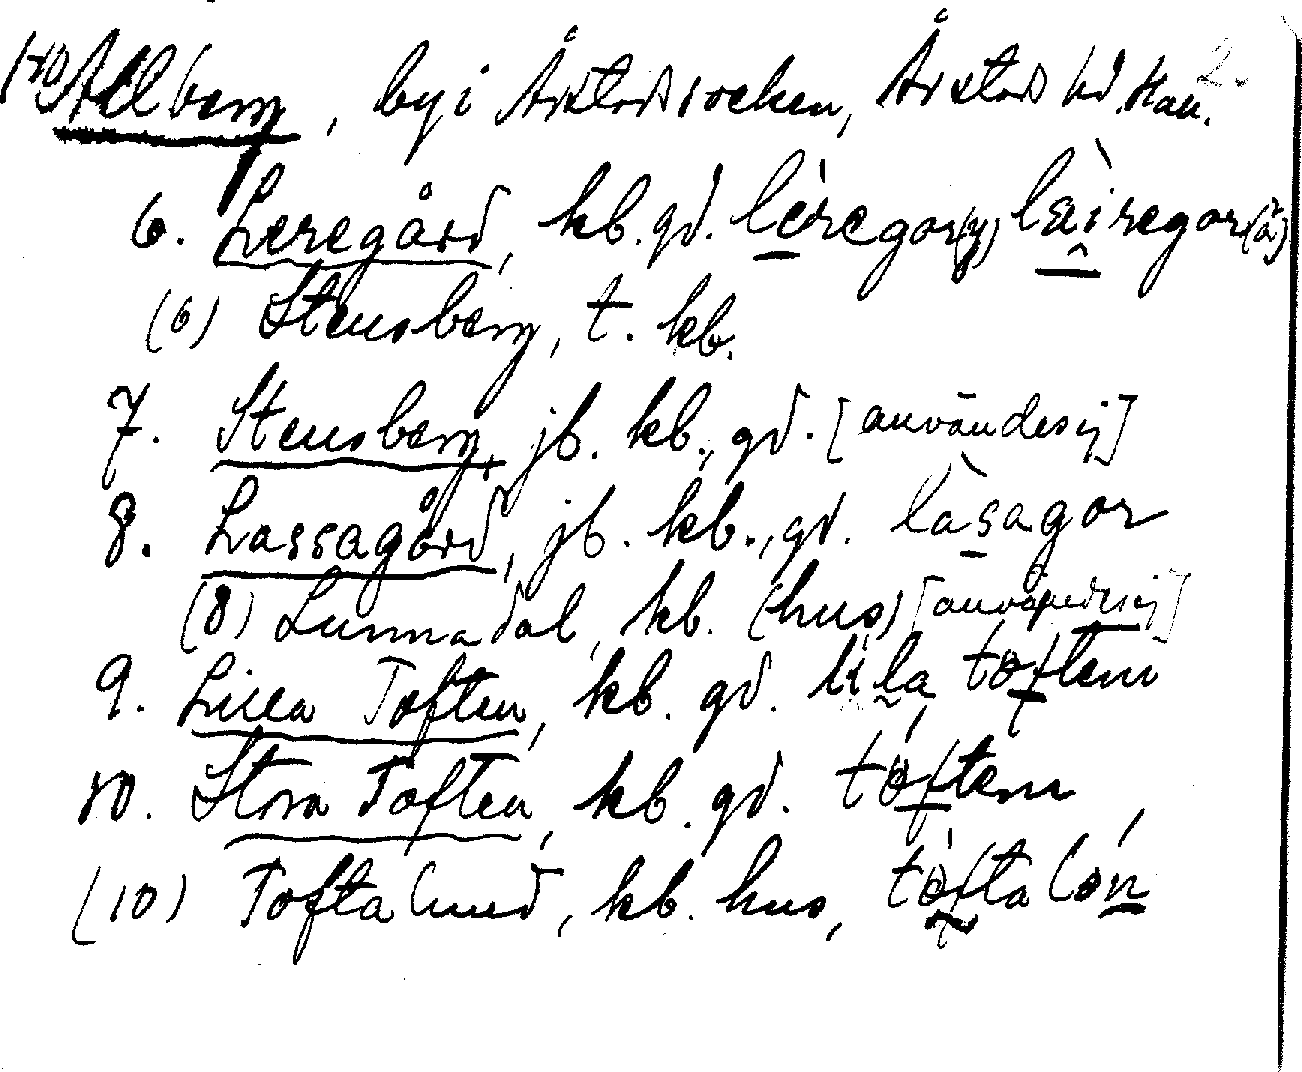 1-10 Alberg, by i Årstads socken, Årstads hd, Hall. 2.
6. Leregård, kb. gd. lèregor(y) læ̀iregor(ä)
(6) Stensberg, t. kb.
7. Stensberg, jb. kb., gd. [användes ej]
8. Lassagård, jb. kb., gd. làsagor
(8) Lunnadal, kb. (hus) [användes ej]
9. Lilla Toften, kb. gd. lìla tøftem
10. Stora Toften, kb. gd. tøftem
(10) Toftalund, kb. hus, tøftaløn